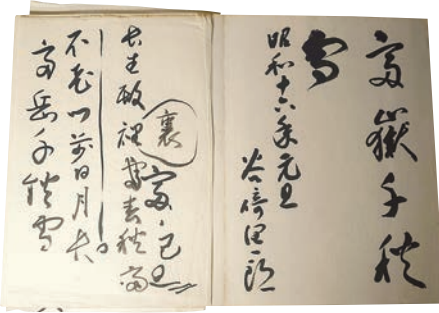 富嶽千秋
雪
昭和十六年元旦
谷﨑潤一郎
裏
長生殿裡春秋富
不老門前日月長
富岳千秋雪